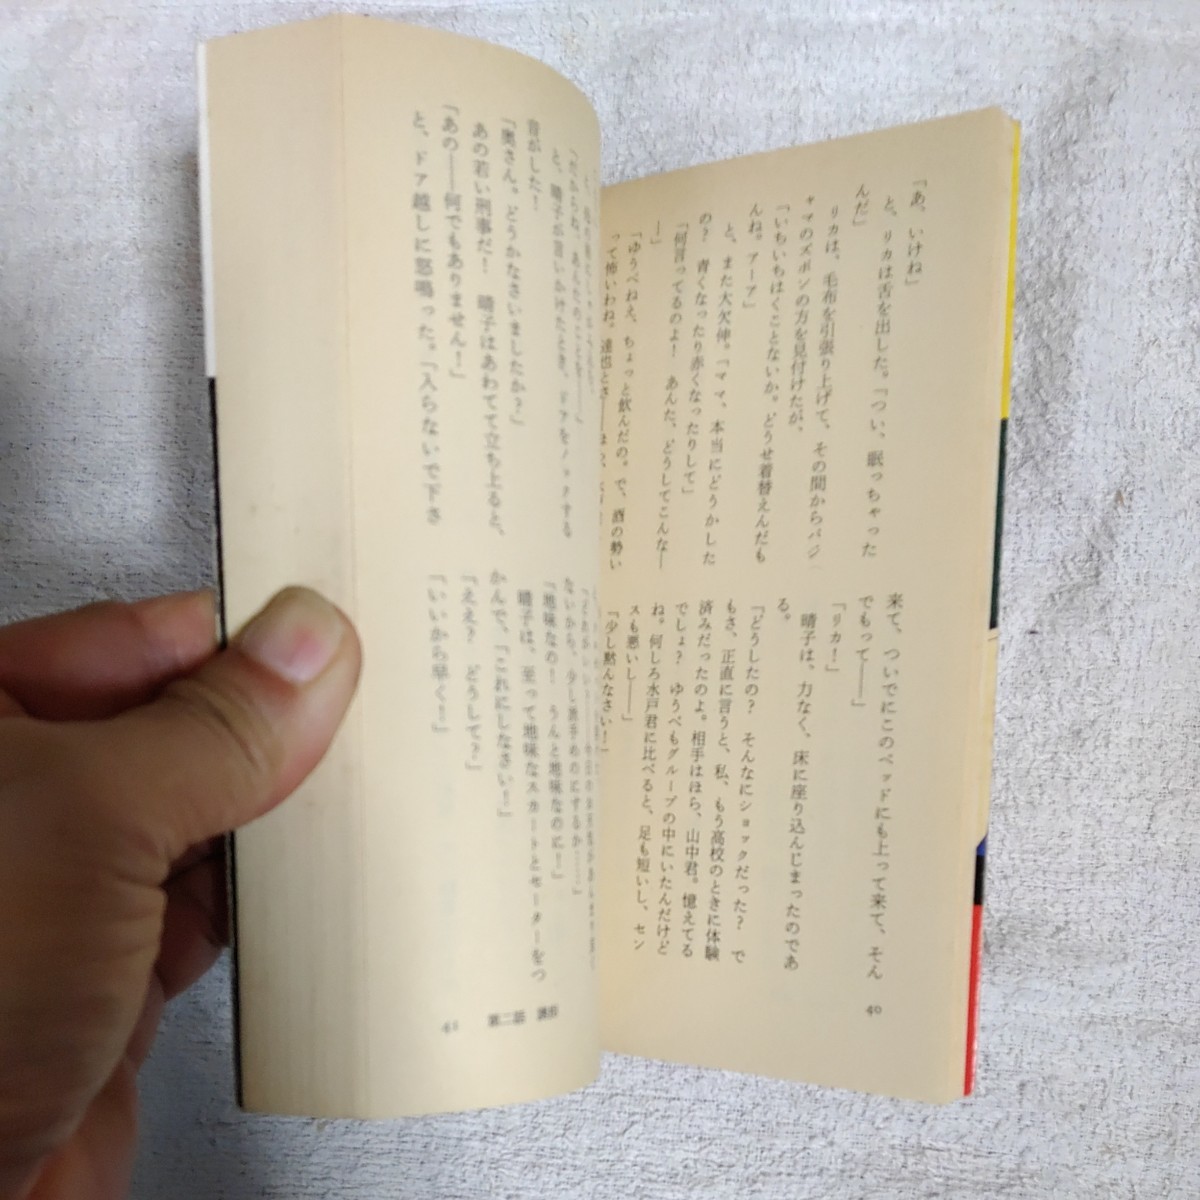 「あ、いけね」
と、リカは舌を出した。「つい、眠っちゃった
んだ」
リカは、毛布を引張り上げて、その間からパジ
ャマのズボンの方を見付けたが、
「いちいちはくことないか。どうせ着替えんだも
んね。アーア」
と、また大欠伸。「ママ、本当にどうかした
の? 青くなったり赤くなったりして」
「何言ってるのよ! あんた、どうしてこんな―
―」
「ゆうべねえ、ちょっと飲んだの。で、酒の勢い
って怖いわね。達也とさ――
来て、ついでにこのベッドにも上って来て、そん
でもって――」
「リカ!」
晴子は、力なく、床に座り込んじまったのであ
る。
「どうしたの? そんなにショックだった? で
もさ、正直に言うと、私、もう高校のときに体験
済みだったのよ。相手はほら、山中君。憶えてる
でしょ? ゆうべもグループの中にいたんだけど
ね。何しろ水戸君に比べると、足も短いし、セン
スも悪いし――」
「少し黙んなさい!」
40
「だからね、あんたのことを――」
と、晴子が言いかけたとき、ドアをノックする
音がした!
「奥さん。どうかなさいましたか?」
あの若い刑事だ! 晴子はあわてて立ち上ると、
「あの――何でもありません!」
と、ドア越しに怒鳴った。「入らないで下さ
ないから、少し派手めのにするか……」
「地味なの! うんと地味なのに!」
晴子は、至って地味なスカートとセーターをつ
かんで、「これにしなさい!」
「ええ? どうして?」
「いいから早く!」
41 第二話